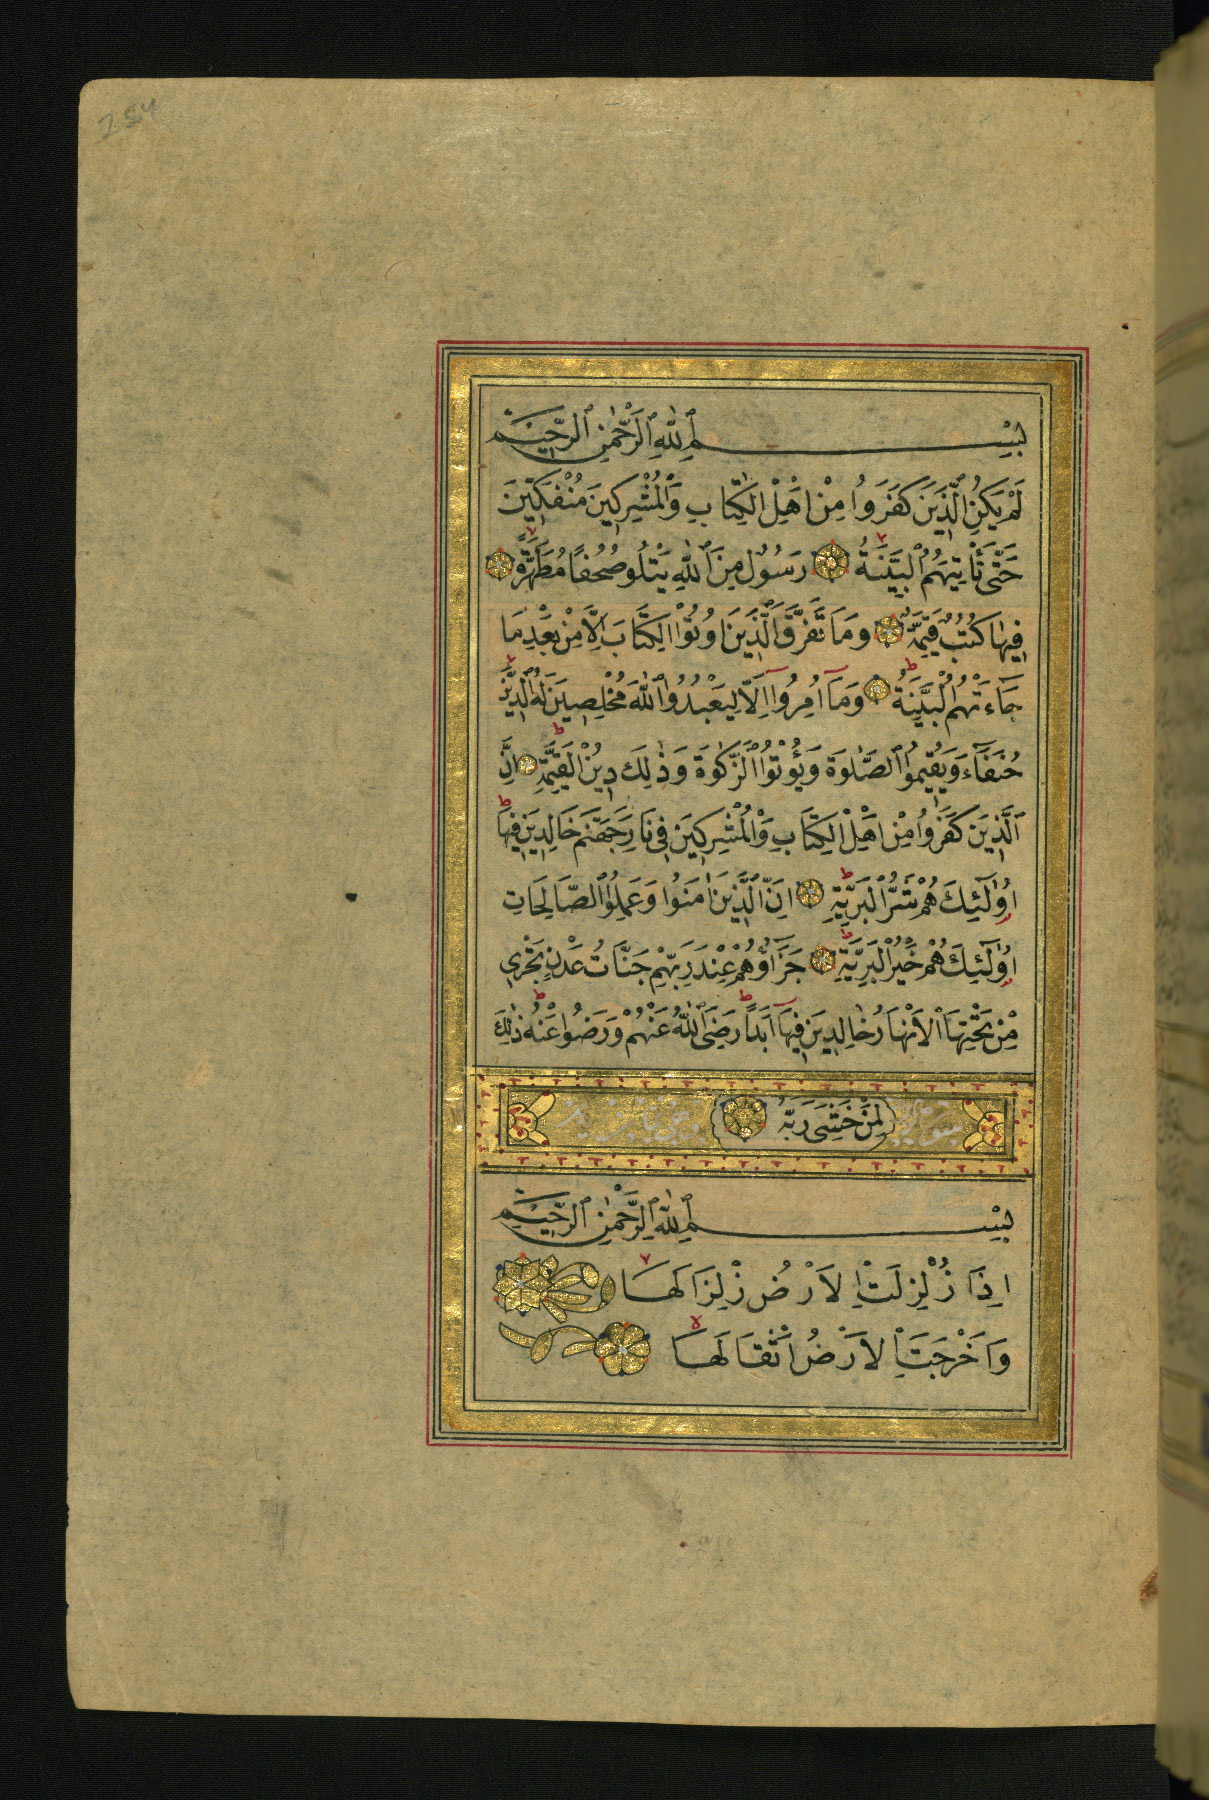 بِسْمِ ٱللّٰهِ ٱلرَّحْمٰنِ ٱلرَّحِيْمِ
لَمْ يَكُنِ ٱلَّذِينَ كَفَرَوُا مِنْ اَهْلِ الْكِتَابِ وَٱلْمُشْرِكِينَ مُنْفَكِّينَ
حَتّٰى تَاْتِيَهُمُ ٱلْبَيِّنَةُ رَسُولٌ مِنَ ٱللّٰهِ يَتْلُو صُحُفًا مُطَهَّرَةً
فِيهَا كُتُبٌ قَيِّمَةٌ وَمَا تَفَرَّقَ ٱلَّذِينَ اُوتُوْا الْكِتَابَ اِلَّا مِنْ بَعْدِ مَا
جَآءَتْهُمُ الْبَيِّنَةُ وَمَآ اُمِرُوٓا اِلَّا لِيَعْبُدُوا ٱللّٰهَ مُخْلِصِينَ لَهُ ٱلدِّينَ
حُنَفَآءَ وَيُقِيمُوا ٱلصَّلٰوةَ وَيُؤْتُوْا ٱلزَّكٰوةَ وَذٰلِكَ دِينُ الْقَيِّمَةِ اِنَّ
ٱلَّذِينَ كَفَرُوا مِنْ اَهْلِ الْكِتَابِ وَٱلْمُشْرِكِينَ فِى نَارِ جَهَنَّمَ خَالِدِينَ فِيهَا
اُولٰٓئِكَ هُمْ شَرُّ الْبَرِيَّةِ اِنَّ ٱلَّذِينَ اٰمَنُوا وَعَمِلُوا ٱلصَّالِحَاتِ
اُولٰٓئِكَ هُمْ خَيْرُ الْبَرِيَّةِ جَزَآؤُهُمْ عِنْدَ رَبِّهِمْ جَنَّاتُ عَدْنٍ تَجْرِى
مِنْ تَحْتِهَا ٱلْاَنْهَارُ خَالِدِينَ فِيهَآ اَبَدًا رَضِىَ ٱللّٰهُ عَنْهُمْ وَرَضُوا عَنْهُ ذٰلِكَ
لِمَنْ خَشِىَ رَبَّهُ
بِسْمِ ٱللّٰهِ ٱلرَّحْمٰنِ ٱلرَّحِيْمِ
اِذَا زُلْزِلَتِ الْاَرْضُ زِلْزَالَهَا
وَاَخْرَجَتِ الْاَرْضُ اَثْقَالَهَا